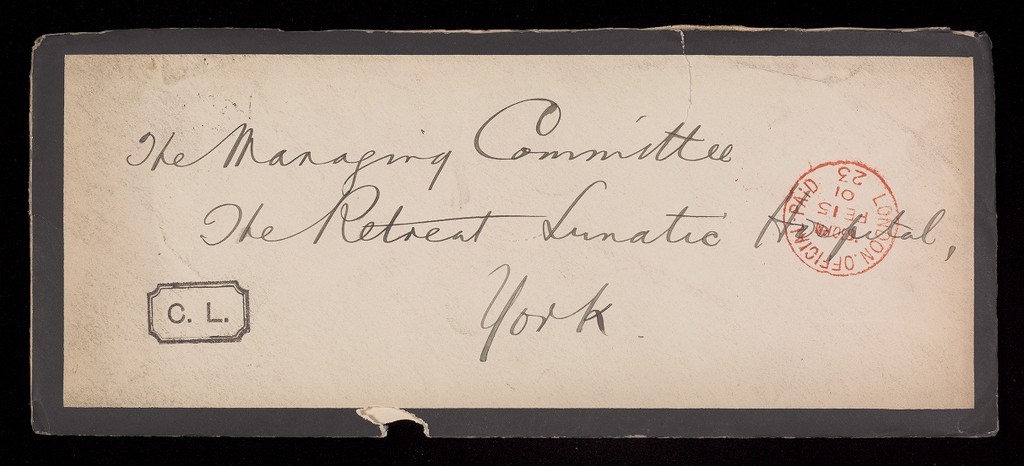 The Managing Committee
The Retreat Lunatic Hospital,
York.
C. L.
LONDON. OFFICIAL PAID
FE 15
01
23